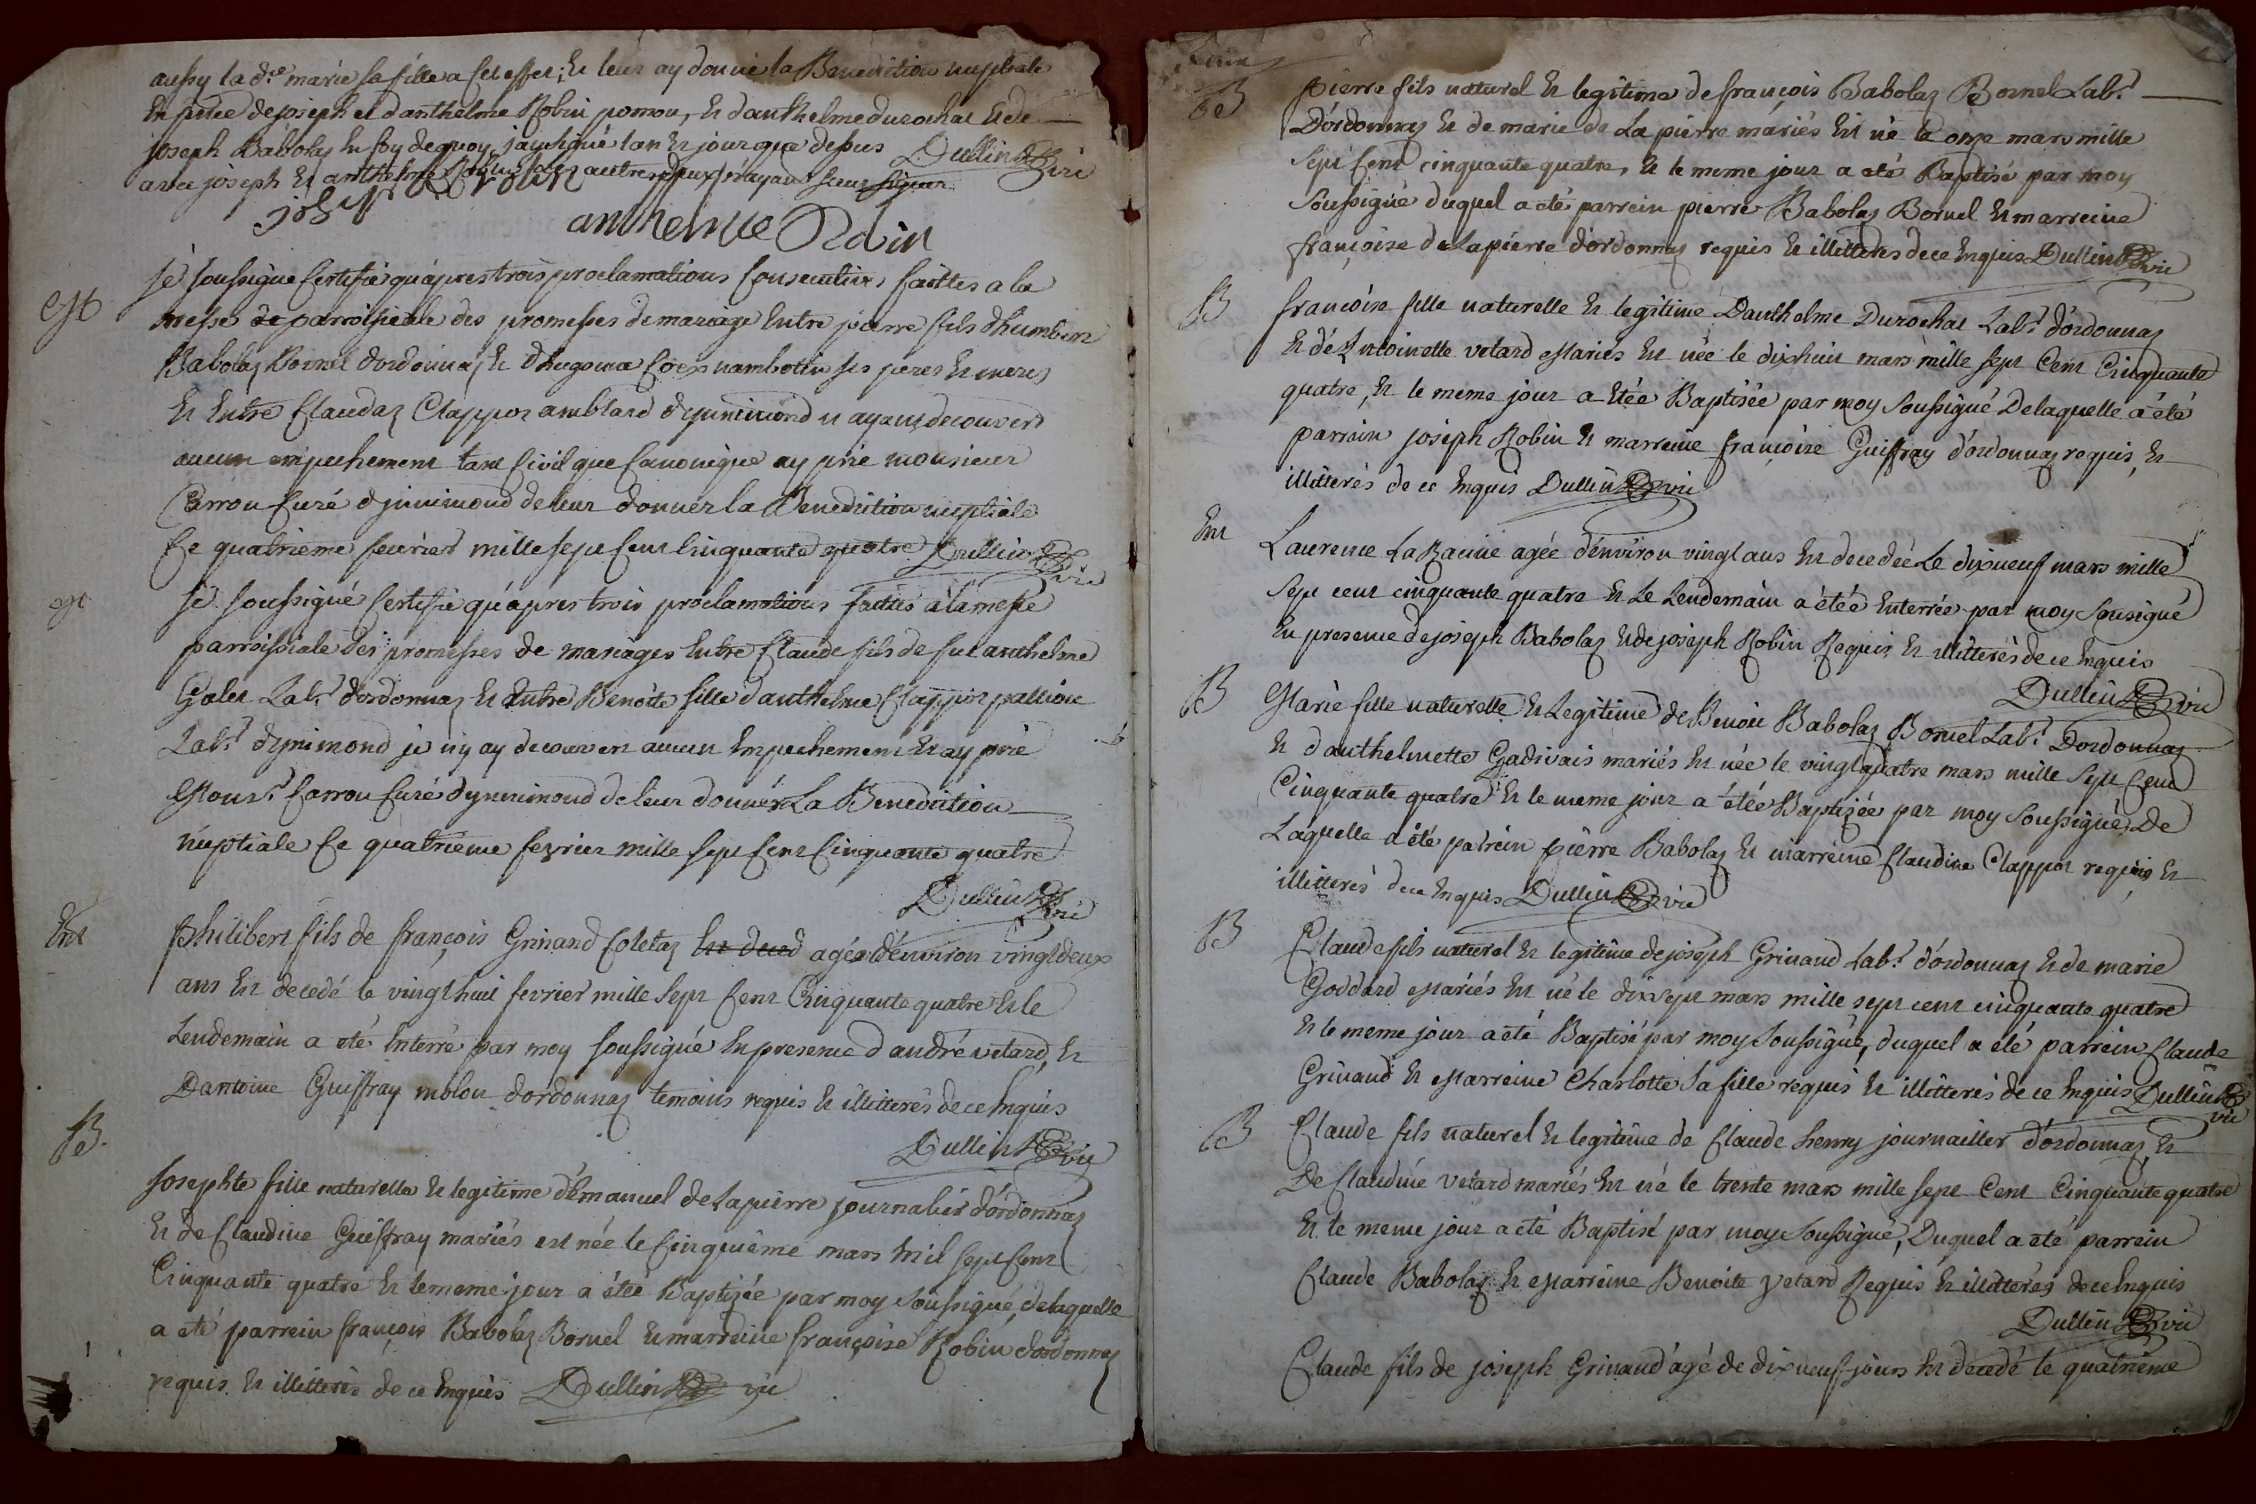 aussy la d.te marie sa fille a cet effet; Et leur ay donné la Benediction nuptiale
En pnce de joseph et danthelme Robin pomou, Et danthelme durochat Et de
joseph Babolaz En foy dequoy j'ay signé l'an Et jour que dessus Dullin vic
avec joseph Et anthelme Robin les autres deux n'ayant sceu signer
joseph robin
anthelme Robin
M
je soussigné Certifie qu'apres trois proclamations Consecutives faittes a la
messe de parroissiale des promesses de mariage Entre pierre fils d'humbert
Babolaz Bornel d'ordonnaz Et d'hugonne Coex nambotin ses peres Et meres
Et Entre Claudaz Clappoz amblard d'ynnimond n ayant decouvert
aucun empechement tant Civil que Canonique ay prié monsieur
Carrou Curé d'jnnimond de leur donner la Benediction nuptiale
Ce quatrieme fevrier mille sept Cent Cinquante quatre Dullin vic
M
je soussigné Certifie qu'apres trois proclamations faittes a la messe
parroissiale des promesses de mariages Entre Claude fils de feu anthelme
Golet Lab.r d'ordonnaz Et Entre Benoite fille d'anthelme Clappoz pallion
Lab.r d'ynimond je n'y ay decouvert aucun Empechement Et ay prié
Mons.r Carrou Curé d'ynnimond de leur donner La Benediction
nuptiale Ce quatrième fevrier mille sept Cent Cinquante quatre
Dullin vic
Ent
Philibert fils de françois Grinand Coletaz Est deced agé d'environ vingtdeux
ans Est decedé le vingthuit fevrier mille sept Cent Cinquante quatre Et le
Lendemain a eté Enterré par moy soussigné En presence d'andré vetard, Et
D'antoine Guiffray mblou d'ordonnaz temoins requis Et illitterés de ce Enquis
Dullin vic
B.
josephte fille naturelle Et legitime d'Emanuel de Lapierre journalier d'ordonnaz
Et de Claudine Guiffray mariés est née le Cinquième mars mil sept Cent
Cinquante quatre Et le meme jour a étée Baptizée par moy soussigné, de laquelle
a eté parrein françois Babolaz Bornel Et marreine françoise Robin d'ordonnaz
requis Et illitterés de ce Enquis Dullin vic
B
pierre fils naturel Et legitime de françois Babolaz Bornel Lab.r
D'ordonnaz Et de marie de La pierre mariés Est né le onze mars mille
Sept Cent cinquante quatre, Et le meme jour a eté Baptisé par moy
Soussigné duquel a eté parrein pierre Babolaz Bornel Et marreine
françoise de Lapierre d'ordonnaz requis Et illitterés de ce Enquis Dullin vic
B
françoise fille naturelle Et legitime D'anthelme Durochat Lab.r d'ordonnaz
Et d'Antoinette vetard Mariés Est née le dixhuit mars mille sept Cent Cinquante
quatre, Et le meme jour a Etée Baptisée par moy soussigné De laquelle a été
parrain joseph Robin Et marreine françoise Guiffray d'ordonnaz requis, Et
illitterés de ce Enquis Dullin vic
Ent
Laurence La Racine agée d'environ vingt ans Est decedée Le dixneuf mars mille
Sept cent cinquante quatre Et Le Lendemain a étée Enterrée par moy Sousigné
En presence de joseph Babolaz Et de joseph Robin Requis Et illitterés de ce Enquis
Dullin vic
B
Marie fille naturelle Et Legitime de Benoit Babolaz Bornel Lab.r D'ordonnaz
Et d'anthelmette Gadivais mariés Est née le vingtquatre mars mille Sept Cent
Cinquante quatre Et le meme jour a étée Baptizée par moy Soussigné, De
Laquelle a été parrein pierre Babolaz Et marreine Claudine Clappoz requis Et
illitterés de ce Enquis Dullin vic
B
Claude fils naturel Et legitime de joseph Grinand Lab.r d'ordonnaz Et de marie
Goddard Mariés Est né le dixsept mars mille sept cent cinquante quatre
Et le meme jour a eté Baptisé par moy Soussigné, duquel a eté parrein Claude
Grinand Et Marreine Charlotte sa fille requis Et illitterés de ce Enquis Dullin vic
B
Claude fils naturel Et legitime de Claude henry journailler d'ordonnaz, Et
De Claudine vetard mariés Est né le trente mars mille sept Cent Cinquante quatre
Et le meme jour a eté Baptisé par moy Soussigné, Duquel a eté parrein
Claude Babolaz Et Marreine Benoite vetard Requis Et illitterés de ce Enquis
Dullin vic
Claude fils de joseph Grinand agé de dixneuf jours Est decedé le quatrième